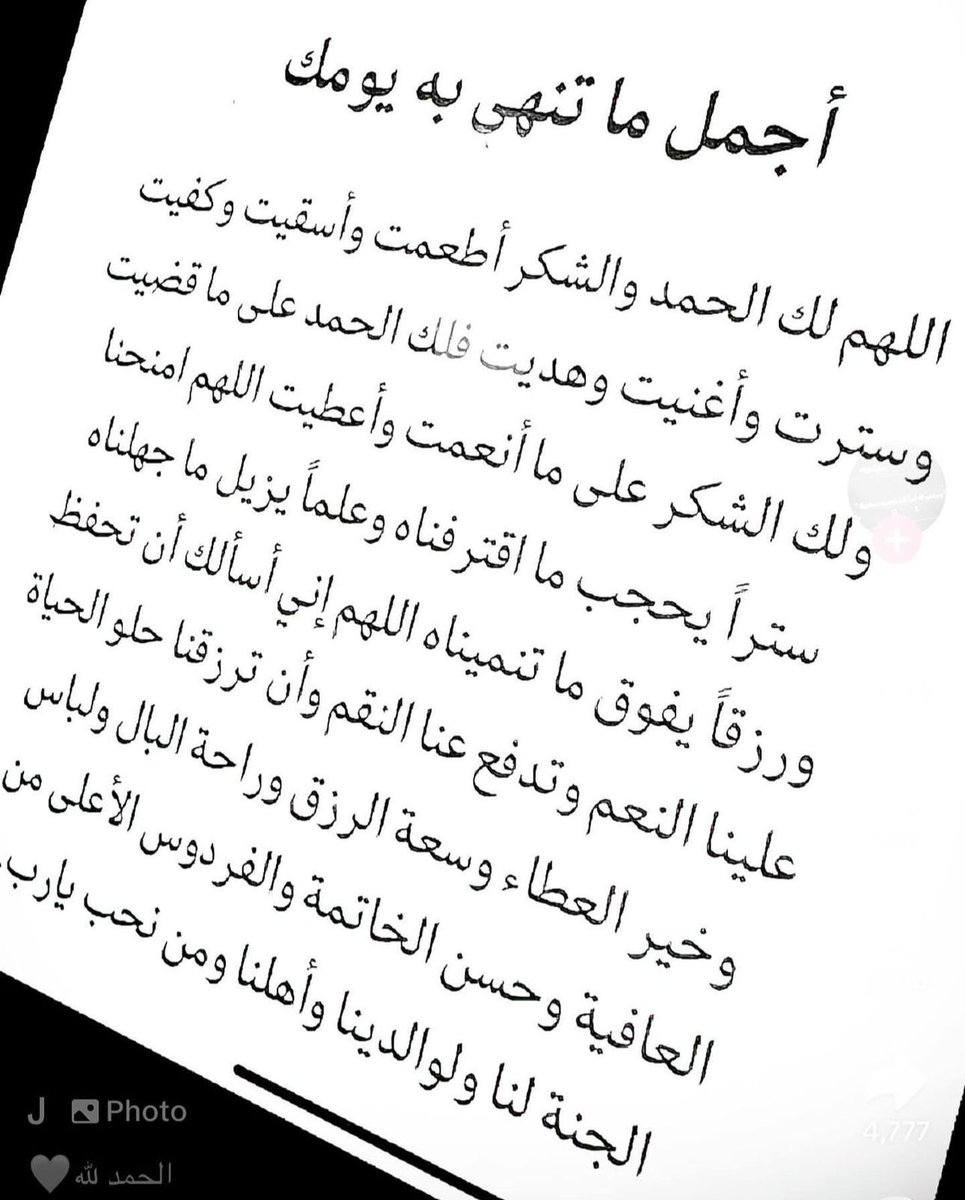 أجمل ما تنهي به يومك
اللهم لك الحمد والشكر أطعمت وأسقيت وكفيت
وسترت وأغنيت وهديت فلك الحمد على ما قضيت
ولك الشكر على ما أنعمت وأعطيت اللهم امنحنا
ستراً يحجب ما اقترفناه وعلماً يزيل ما جهلناه
ورزقاً يفوق ما تنميناه اللهم إني أسألك أن تحفظ
علينا النعم وتدفع عنا النقم وأن ترزقنا حلو الحياة
وخير العطاء وسعة الرزق وراحة البال ولباس
العافية وحسن الخاتمة والفردوس الأعلى من
الجنة لنا ولوالدينا وأهلنا ومن نحب يارب.
4,777
J Photo
الحمد لله🤍